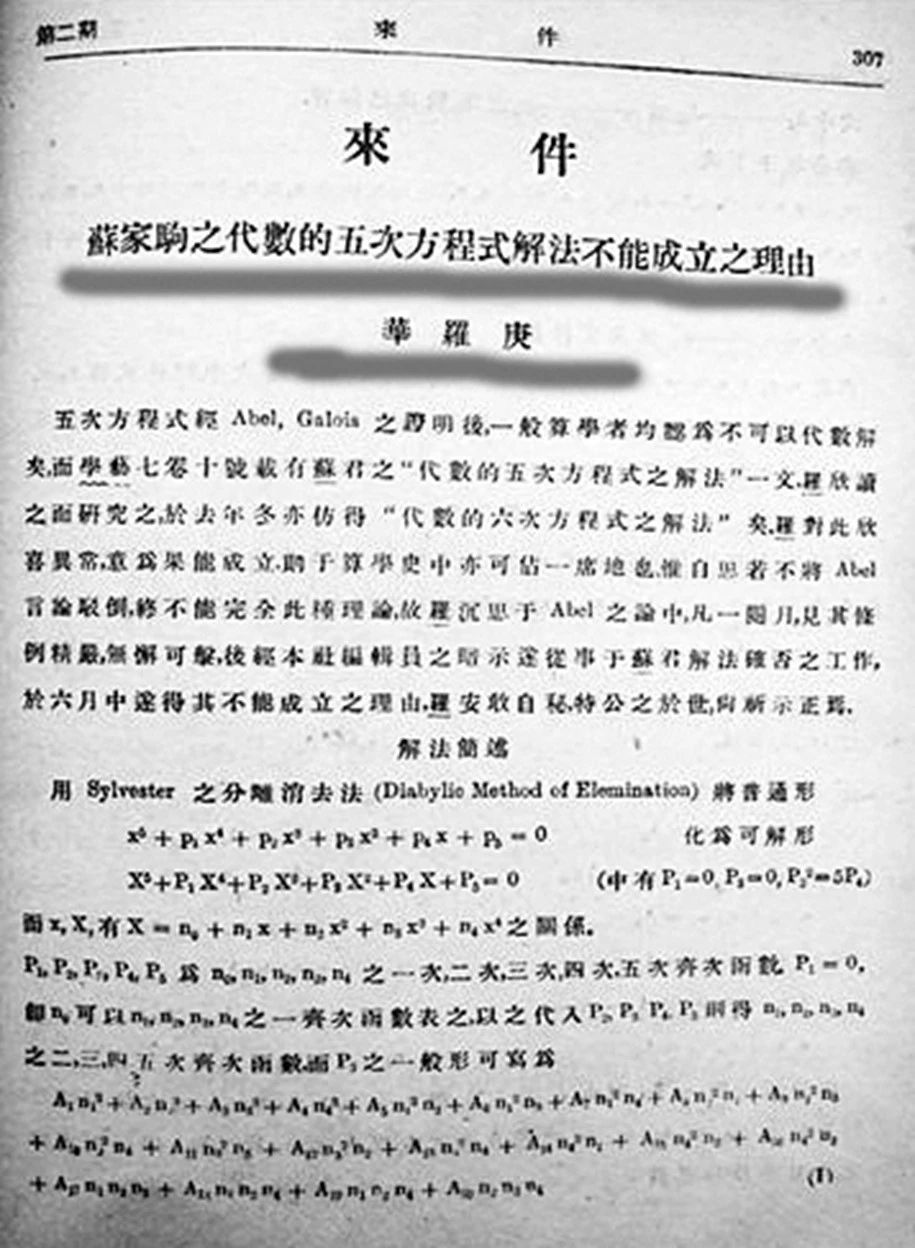 第二期 來件 307
來件
蘇家駒之代數的五次方程式解法不能成立之理由
華羅庚
五次方程式經 Abel, Galois 之證明後,一般算學者均認爲不可以代數解
矣,而學藝七卷十號載有蘇君之“代數的五次方程式之解法”一文,羅欣讀
之而研究之,於去年冬亦仿得“代數的六次方程式之解法”矣,羅對此欣
喜異常,意爲果能成立,則于算學史中亦可佔一席地也,惟自思若不將 Abel
言論駁倒,終不能完全此種理論,故羅沉思于 Abel 之論中,凡一閱月,見其條
例精嚴,無懈可擊,後經本社編輯員之暗示遂從事于蘇君解法確否之工作,
於六月中遂得其不能成立之理由,羅安敢自秘,特公之於世,尚祈示正焉.
解法簡述
用 Sylvester 之分離消去法 (Diabylic Method of Elemination) 將普通形
x⁵ + p₁ x⁴ + p₂ x³ + p₃ x² + p₄ x + p₅ = 0 化爲可解形
X⁵+P₁ X⁴+P₂ X³+P₃ X²+P₄ X+P₅= 0 (中有 P₁=0, P₃=0, P₂²=5P₄)
而 x, X, 有 X = n₀ + n₁ x + n₂ x² + n₃ x³ + n₄ x⁴ 之關係.
P₁, P₂, P₃, P₄, P₅ 爲 n₀, n₁, n₂, n₃, n₄ 之一次,二次,三次,四次,五次齊次函數. P₁ = 0,
卽 n₀ 可以 n₁, n₂, n₃, n₄ 之一齊次函數表之,以之代入 P₂, P₃ P₄ P₅ 則得 n₁, n₂, n₃, n₄
之二,三,四五次齊次函數,而 P₃ 之一般形可寫爲
A₁ n₁³ + A₂ n₂³ + A₃ n₃³ + A₄ n₄³ + A₅ n₁² n₂ + A₆ n₁² n₃ + A₇ n₁² n₄ + A₈ n₂² n₁ + A₉ n₂² n₃
+ A₁₀ n₂² n₄ + A₁₁ n₃² n₁ + A₁₂ n₃² n₂ + A₁₃ n₃² n₄ + A₁₄ n₄² n₁ + A₁₅ n₄² n₂ + A₁₆ n₄² n₃
+ A₁₇ n₁ n₂ n₃ + A₁₈ n₁ n₃ n₄ + A₁₉ n₁ n₂ n₄ + A₂₀ n₂ n₃ n₄ (I)